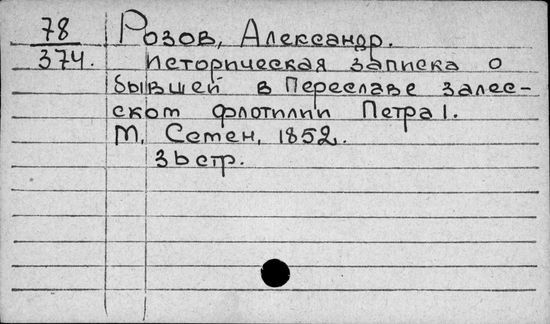 78 Розов, Александр.
374. Историческая записка о
бывшей в Переславе залес-
ском флотилии Петра I.
М, Семен, 1852.
36 стр.